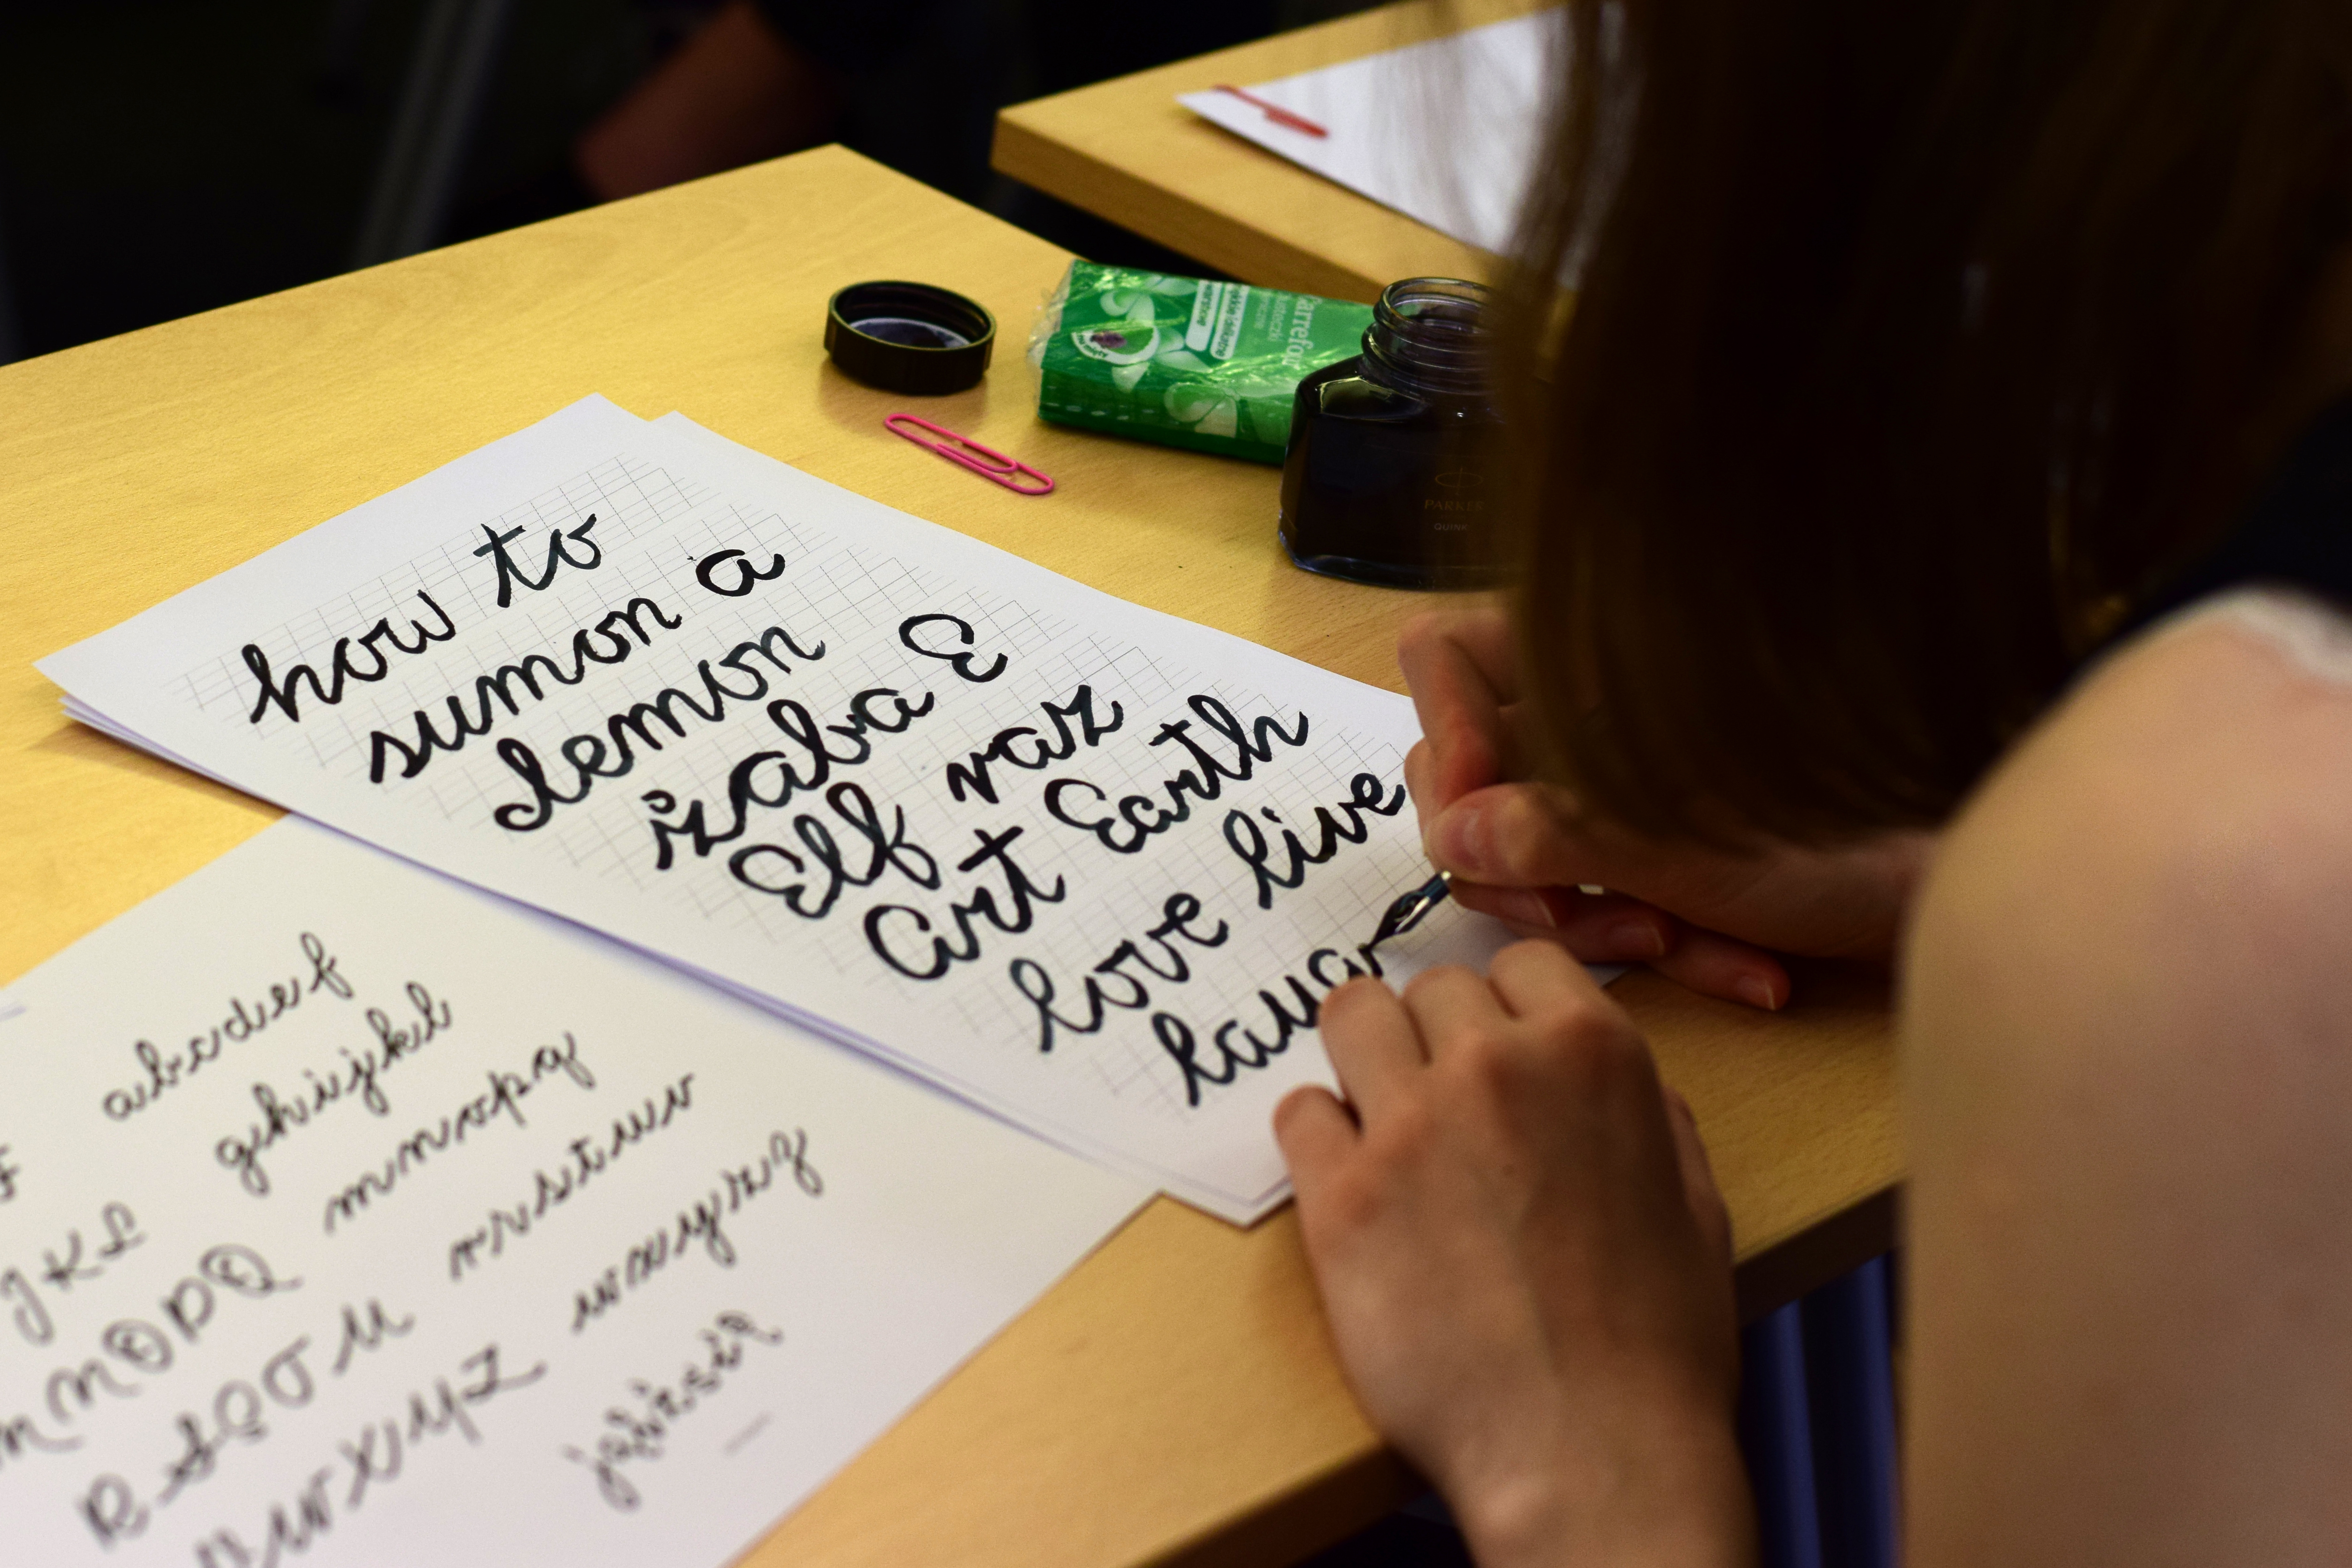 how to
sumon a
demon
żaba E
Elf raz
Art Earth
love live
laug
abcdef
ghijkl
mnopq
rrstuw
wxyzz
JKL
MNOPQ
RSSTU
WXYZ
Carrefour
PARKER
QUINK